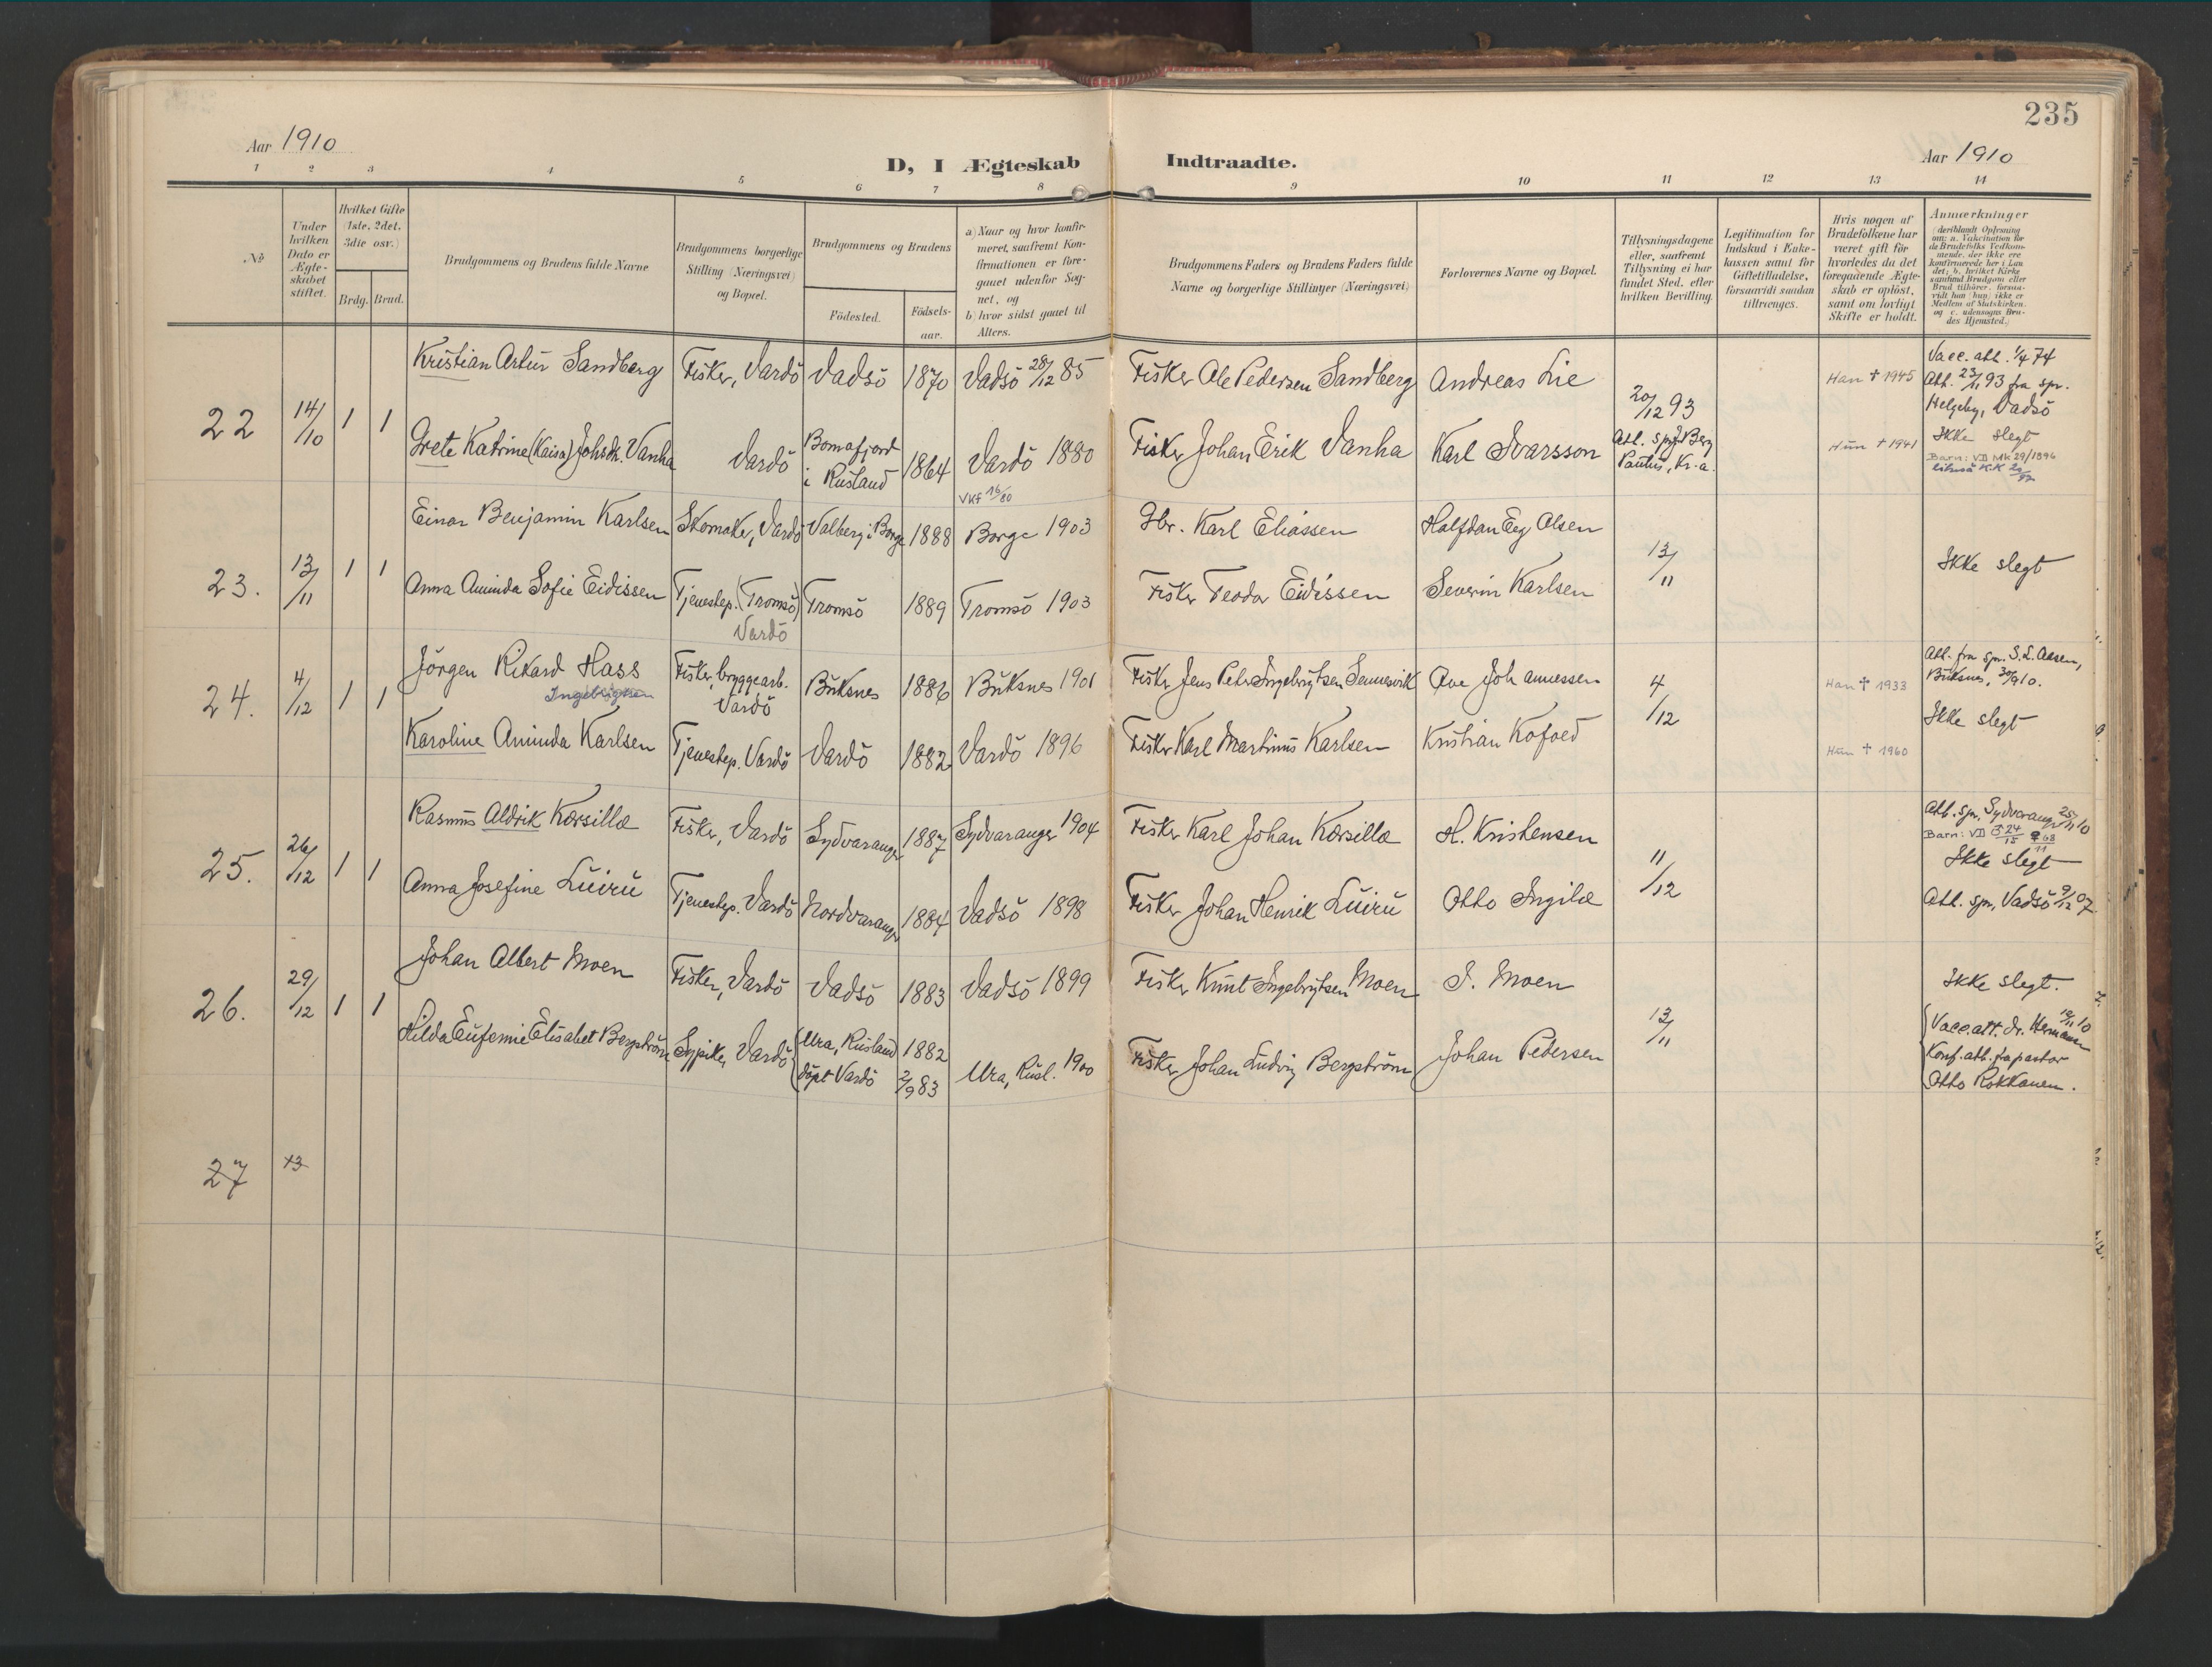 235
Aar 1910
D, I Ægteskab Indtraadte.
Aar 1910
1 2 3 4 5 6 7 8 9 10 11 12 13 14
No
Under
hvilken
Dato er
Ægte-
skabet
stiftet.
Hvilket Gifte
(1ste, 2det,
3die osv.)
Brdg. Brud.
Brudgommens og Brudens fulde Navne
Brudgommens borgerlige
Stilling (Næringsvei)
og Bopæl.
Brudgommens og Brudens
Fødested.
Fødsels-
aar.
a) Naar og hvor konfir-
meret, saafremt Kon-
firmationen er fore-
gaaet udenfor Sog-
net, og
b) hvor sidst gaaet til
Alters.
Brudgommens Faders og Brudens Faders fulde
Navne og borgerlige Stillinger (Næringsvei)
Forlovernes Navne og Bopæl.
Tillysningsdagene
eller, saafremt
Tillysning ei har
fundet Sted, efter
hvilken Bevilling.
Legitimation for
Indskud i Enke-
kassen samt for
Giftetilladelse,
forsaavidt saadan
tiltrænges.
Hvis nogen af
Brudefolkene har
været gift før
hvorledes da det
foregaaende Ægte-
skab er opløst,
samt om lovligt
Skifte er holdt.
Anmærkninger
(deriblandt Oplysning
om: a. Vakcination for
de Brudefolks Vedkom-
mende, der ikke ere
konfirmerede her i Lan
det; b. hvilket Kirke
samfund Brudgom eller
Brud tilhører, forsaa-
vidt han (hun) ikke er
Medlem af Statskirken.
og c. udensogns Bru-
des Hjemsted.)
22 14/10 1 1
Kristian Artur Sandberg Fisker, Vardö Vadsö 1870 Vadsö 28/12 85 Fisker Ole Pedersen Sandberg Andreas Lie 20/12 93 Han † 1945
Vacc. att. 1/4 74
Att. 23/11 93 fra spr.
Helgeby, Vadsö
Grete Katrine (Kaisa) Johsdtr. Vanha Vardö Bomafjord
i Rusland 1864 Vardö 1880
VKf 16/80
Fisker Johan Erik Vanha Karl Ivarsson Att. spr. J. Berg
Paulus, Kr.a. Hun † 1941
Ikke slegt
Barn: VD Mk 29/1896
23. 13/11 1 1
Einar Benjamin Karlsen Skomaker, Vardö Valberg i Borge 1888 Borge 1903 Gbr. Karl Eliassen Halfdan Eeg Olsen 13/11 Ikke slegt
Anna Aminda Sofie Eidissen Tjenestep. (Tromsö)
Vardö Tromsö 1889 Tromsö 1903 Fisker Teodor Eidissen Severin Karlsen
24. 4/12 1 1
Jörgen Rikard Hass
Ingebrigtsen
Fisker, bryggearb.
Vardö Buksnes 1886 Buksnes 1901 Fisker Jens Peter Ingebrigtsen Sennesvik Ove Johannessen 4/12 Han † 1933
Att. fra spr. S. L. Aasen,
Buksnes, 30/9 10.
Ikke slegt
Karoline Aminda Karlsen Tjenestep. Vardö Vardö 1882 Vardö 1896 Fisker Karl Martinus Karlsen Kristian Kofoed Hun † 1960
25. 26/12 1 1
Rasmus Aldrik Korsilla Fisker, Vardö Sydvaranger 1887 Sydvaranger 1904 Fisker Karl Johan Korsilla H. Kristensen 11/12
Att. spr. Sydvaranger 25/11 10
Barn: VD
Ikke slegt
Anna Josefine Luiru Tjenestep. Vardö Nordvaranger 1884 Vadsö 1898 Fisker Johan Henrik Luiru Otto Ingila Att. spr. Vadsö 9/12 07.
26. 29/12 1 1
Johan Albert Moen Fisker, Vardö Vadsö 1883 Vadsö 1899 Fisker Knut Ingebrigtsen Moen I. Moen 13/11 Ikke slegt.
Hilda Eufemie Elisabet Bergström Sypike, Vardö Ura, Rusland
döpt Vardö 1882
2/9 83 Ura, Rusl. 1900 Fisker Johan Ludvig Bergström Johan Pedersen
Vacc. att. dr. Hermann
Konf. att. fra pastor
Otto Rokkanen.
27 13